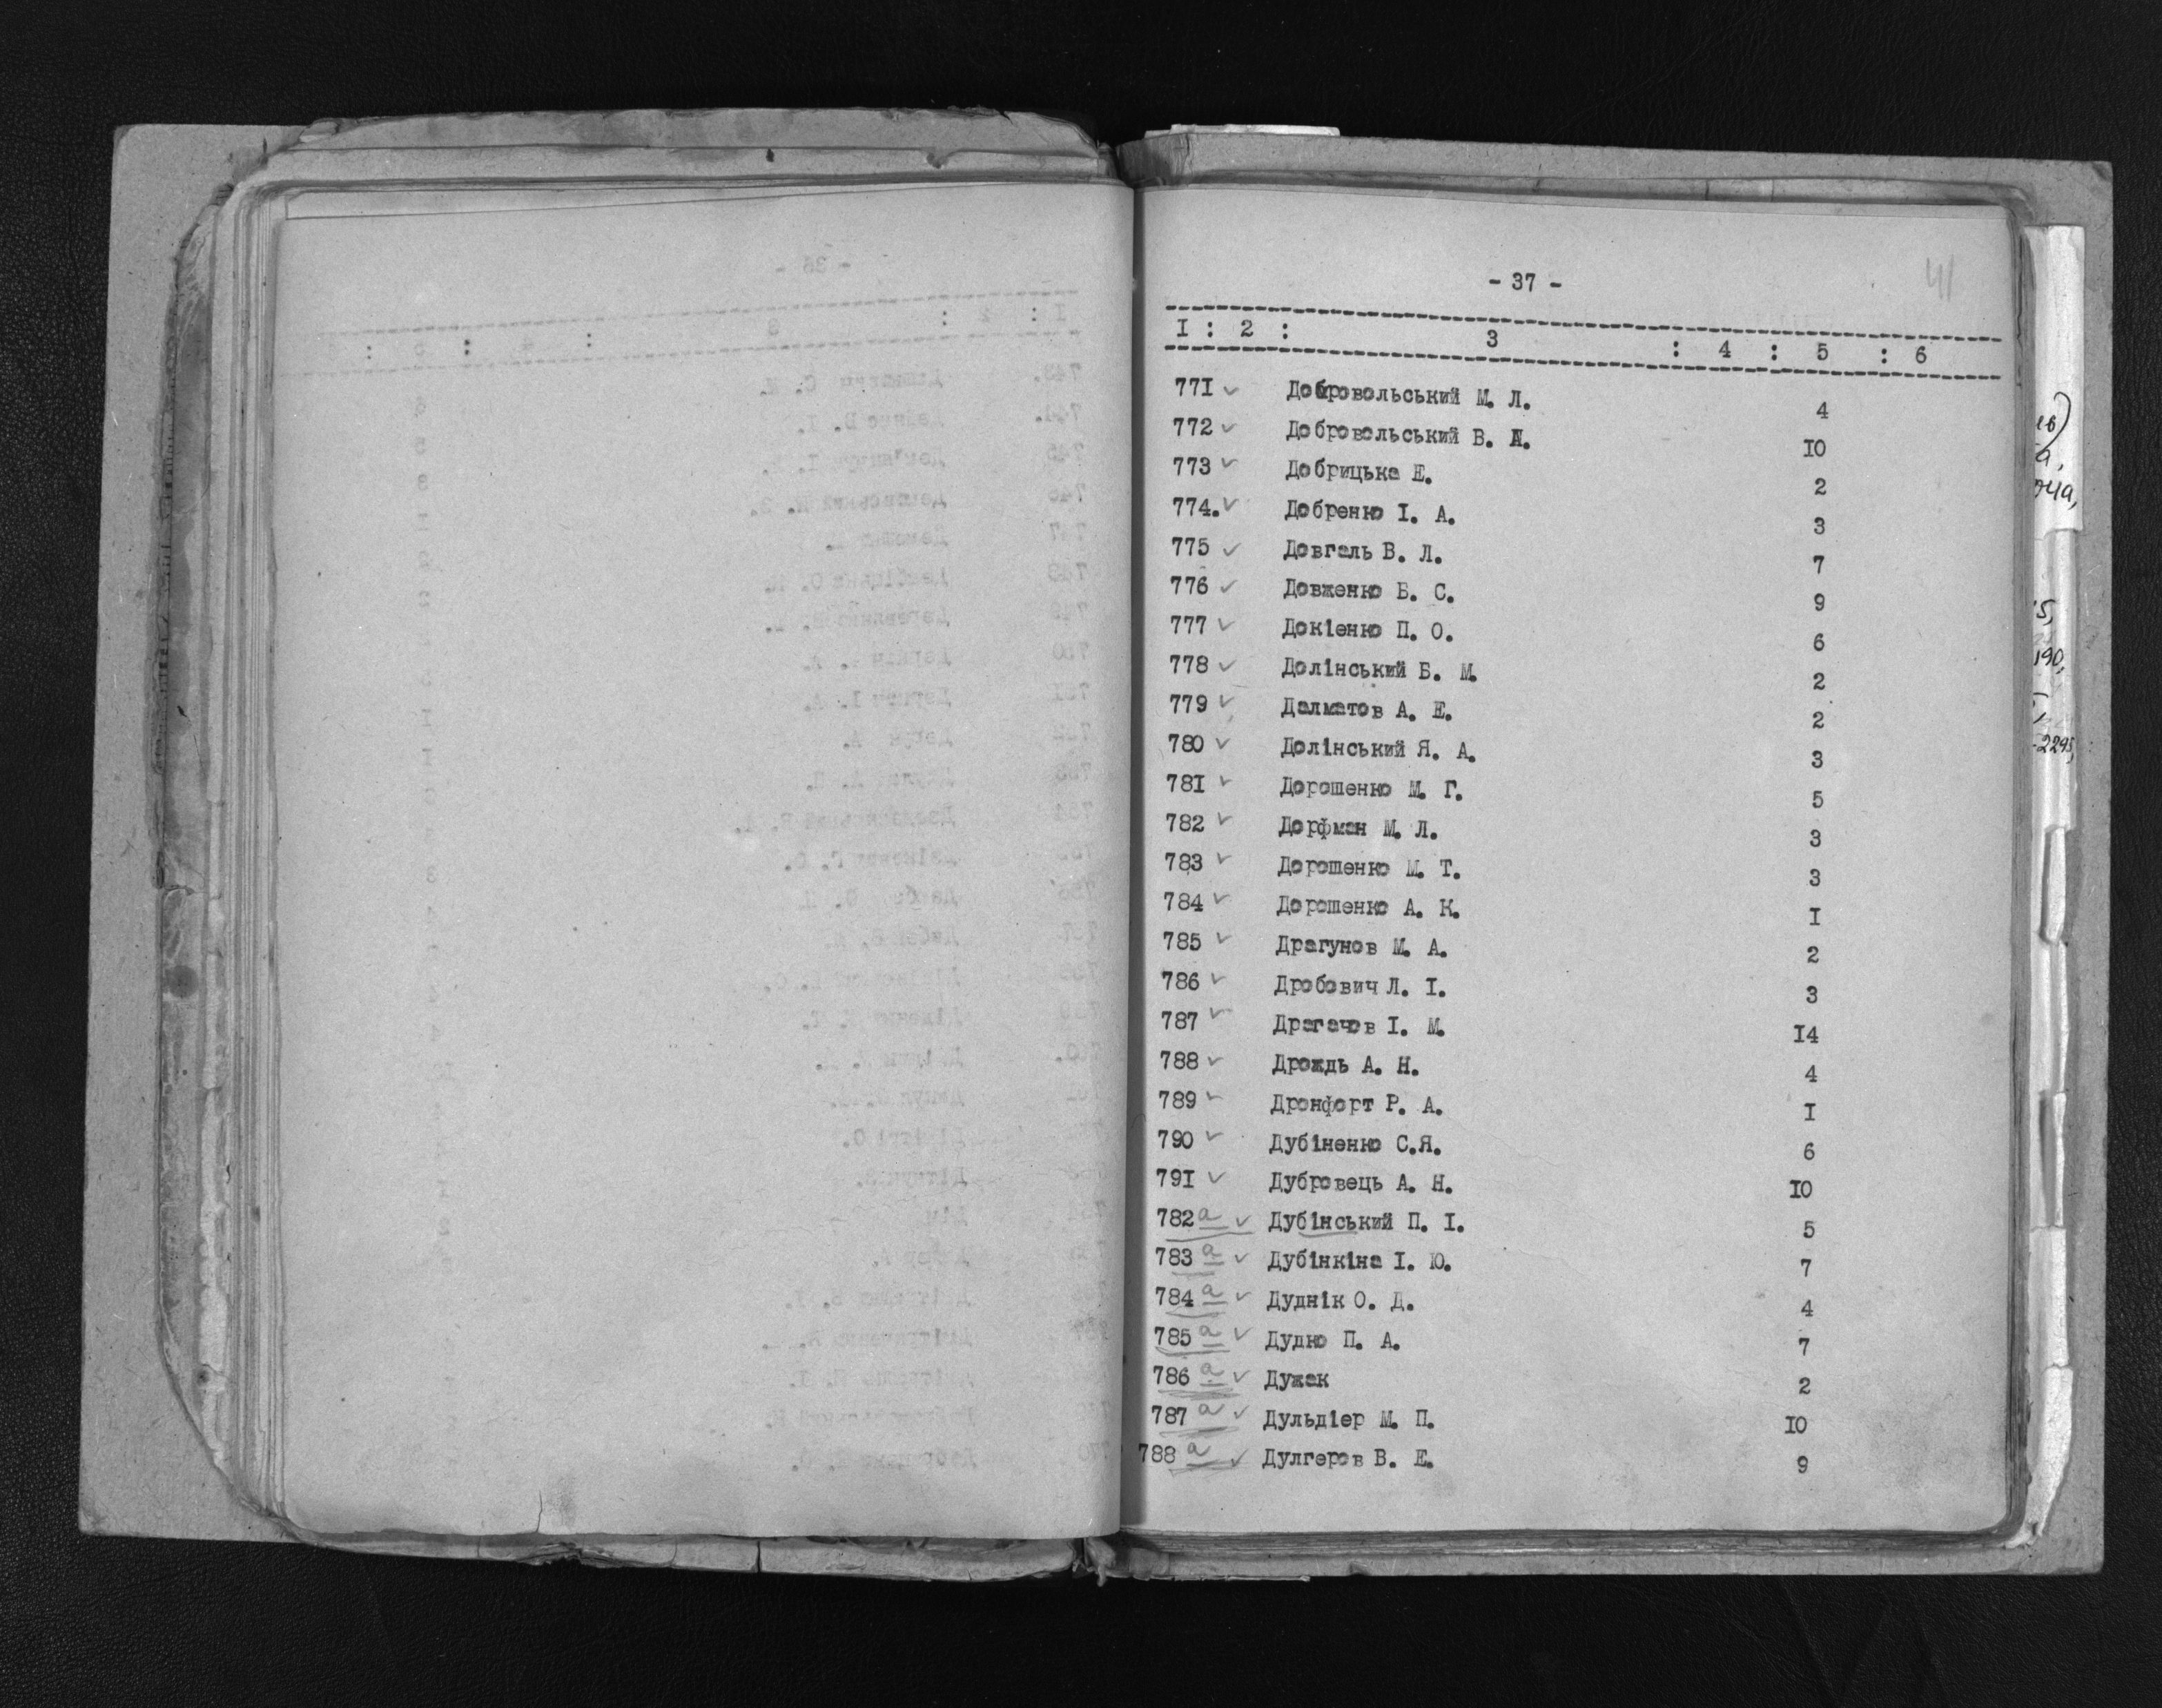 - 37 -
41
I : 2 : 3 : 4 : 5 : 6
771 ✓ Добровольський М. Л. 4
772 ✓ Добровольський В. А. IO
773 ✓ Добрицька Е. 2
774. ✓ Добренко І. А. 3
775 ✓ Довгаль В. Л. 7
776 ✓ Довженко Б. С. 9
777 ✓ Докієнко П. О. 6
778 ✓ Долінський Б. М. 2
779 ✓ Далматов А. Е. 2
780 ✓ Долінський Я. А. 3
78I ✓ Дорошенко М. Г. 5
782 ✓ Дорфман М. Л. 3
783 ✓ Дорошенко М. Т. 3
784 ✓ Дорошенко А. К. I
785 ✓ Драгунов М. А. 2
786 ✓ Дробович Л. І. 3
787 ✓ Драгачов І. М. I4
788 ✓ Дрождь А. Н. 4
789 ✓ Дронфорт Р. А. I
790 ✓ Дубіненко С.Я. 6
79I ✓ Дубровець А. Н. IO
782 а ✓ Дубінський П. І. 5
783 а ✓ Дубінкіна І. Ю. 7
784 а ✓ Дуднік О. Д. 4
785 а ✓ Дудко П. А. 7
786 а ✓ Дужак 2
787 а ✓ Дульдієр М. П. IO
788 а ✓ Дулгеров В. Е. 9